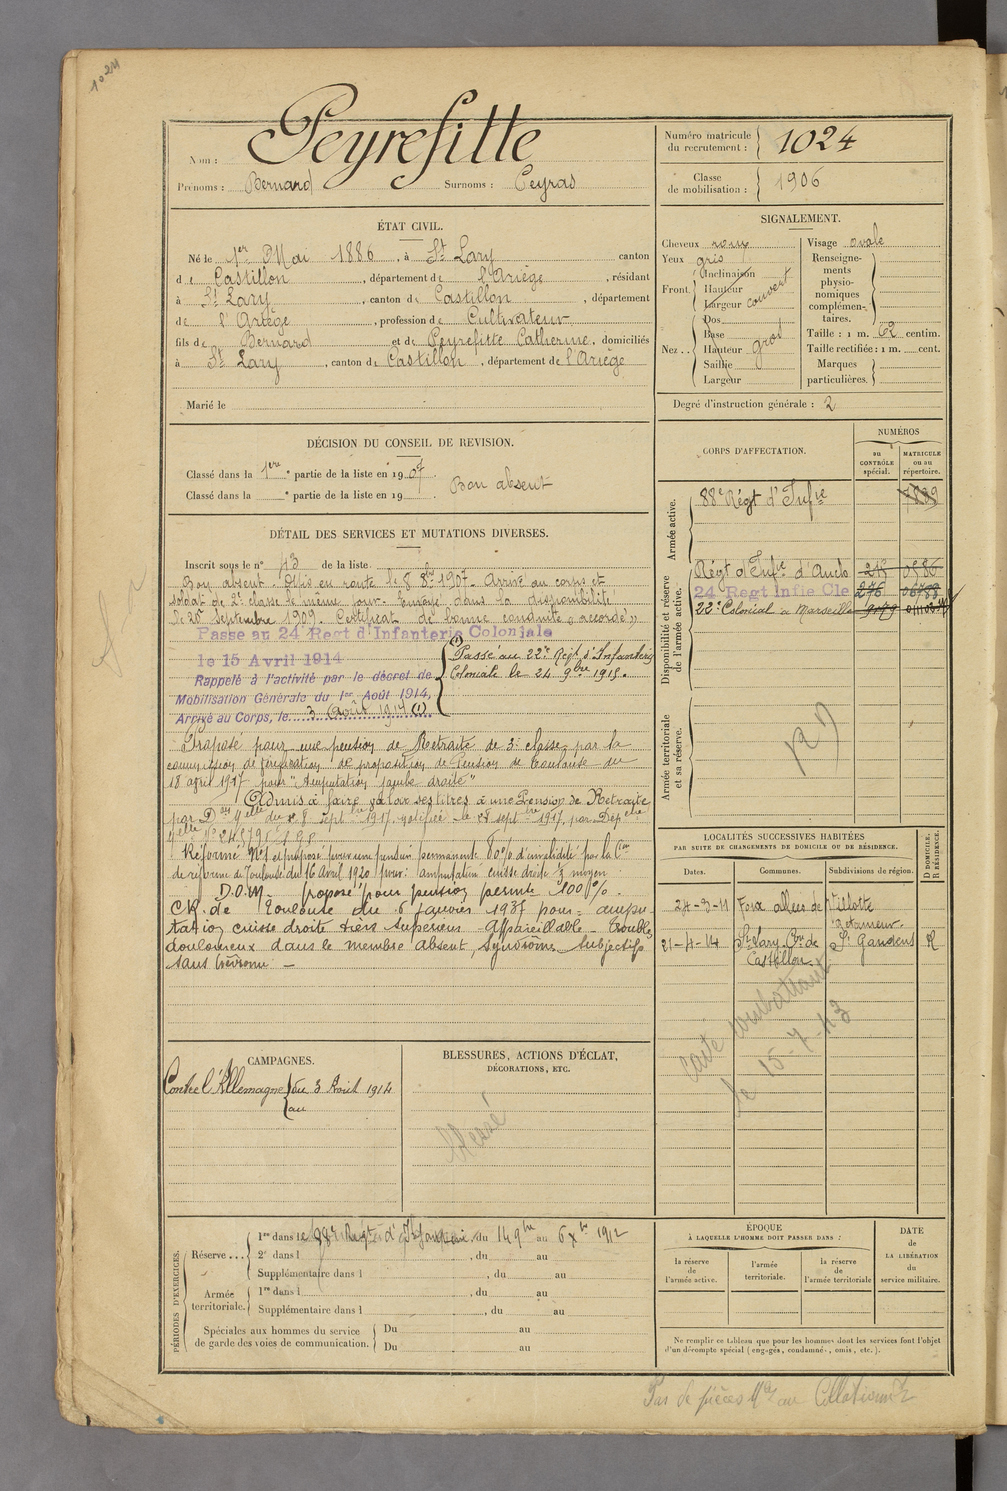 1024
Nom : Peyrefitte
Prénoms : Bernard Surnoms : Peyras
Numéro matricule du recrutement : 1024
Classe de mobilisation : 1906
ÉTAT CIVIL.
Né le 1er Mai 1886, à St Lary canton
de Castillon, département de l'Ariège, résidant
à St Lary, canton de Castillon, département
de l'Ariège, profession de Cultivateur
fils de Bernard et de Peyrefitte Catherine, domiciliés
à St Lary, canton de Castillon, département de l'Ariège
Marié le
SIGNALEMENT.
Cheveux roux
Yeux gris
Front. Inclinaison Hauteur Largeur couvert
Nez.. Dos Base Hauteur Saillie Largeur gros
Visage ovale
Renseignements physionomiques complémentaires.
Taille : 1 m. 62 centim.
Taille rectifiée : 1 m. cent.
Marques particulières.
Degré d'instruction générale : 2
DÉCISION DU CONSEIL DE REVISION.
Classé dans la 1ère partie de la liste en 1907.
Classé dans la e partie de la liste en 19
Bon absent
DÉTAIL DES SERVICES ET MUTATIONS DIVERSES.
Inscrit sous le n° 43 de la liste
Bon absent. Mis en route le 8 8bre 1907. Arrivé au corps et
soldat de 2e classe le même jour. Envoyé dans la disponibilité
le 25 septembre 1909. Certificat de bonne conduite "accordé"
Passé au 24 Regt d'Infanterie Coloniale
le 15 Avril 1914
Rappelé à l'activité par le décret de
Mobilisation Générale du 1er Août 1914,
Arrivé au Corps, le 3 Août 1914 (1)
(1) Passé au 22e Régt d'Infanterie
Coloniale le 24 9bre 1915.
Proposé pour une pension de Retraite de 3e classe par la
commission de vérification de proposition de Pension de Toulouse du
18 avril 1917 pour "Amputation jambe droite"
Admis à faire valoir ses titres à une Pension de Retraite
par Don du 8 septbre 1917, notifiée le sept 1917, par Dép
Réformé N°1 et proposé pour une pension permanente 80% d'invalidité par la Con
de réforme de Toulouse du 16 Avril 1920 pour : amputation cuisse droite 1/3 moyen
D.O.M. proposé pour pension permte 100%.
CR. de Toulouse du 6 Janvier 1937 pour : ampu-
tation cuisse droite tiers supérieur appareillable - Troubles
douloureux dans le membre absent, Syndrôme subjectif
sans
CORPS D'AFFECTATION.
NUMÉROS
au CONTRÔLE spécial.
MATRICULE ou au répertoire.
Armée active.
88e Régt d'Infie
Disponibilité et réserve de l'armée active.
Régt d'Infie d'Auch
24 Regt Infie Cle 276
22e Colonial à Marseille
Armée territoriale et sa réserve.
LOCALITÉS SUCCESSIVES HABITÉES
PAR SUITE DE CHANGEMENTS DE DOMICILE OU DE RÉSIDENCE.
Dates. Communes. Subdivisions de région. D DOMICILE. R RÉSIDENCE.
24-9-11 Foix allées de Villotte
21-4-14 St Lary Con de Castillon St Gaudens R
Carte combattant
le 15-7-43
CAMPAGNES.
Contre l'Allemagne du 3 Août 1914
au
BLESSURES, ACTIONS D'ÉCLAT,
DÉCORATIONS, ETC.
Blessé
PÉRIODES D'EXERCICES.
Réserve... 1re dans le 88e Régt d'Infanterie, du 14 9bre au 6 Xbre 1912
2e dans l , du au
Supplémentaire dans l , du au
Armée territoriale. 1re dans l , du au
Supplémentaire dans l , du au
Spéciales aux hommes du service de garde des voies de communication. Du au
Du au
ÉPOQUE
À LAQUELLE L'HOMME DOIT PASSER DANS :
la réserve de l'armée active.
l'armée territoriale.
la réserve de l'armée territoriale
DATE de LA LIBÉRATION du service militaire.
Ne remplir ce tableau que pour les hommes dont les services font l'objet
d'un décompte spécial (engagés, condamnés, omis, etc.).
Pas de pièces Mles au